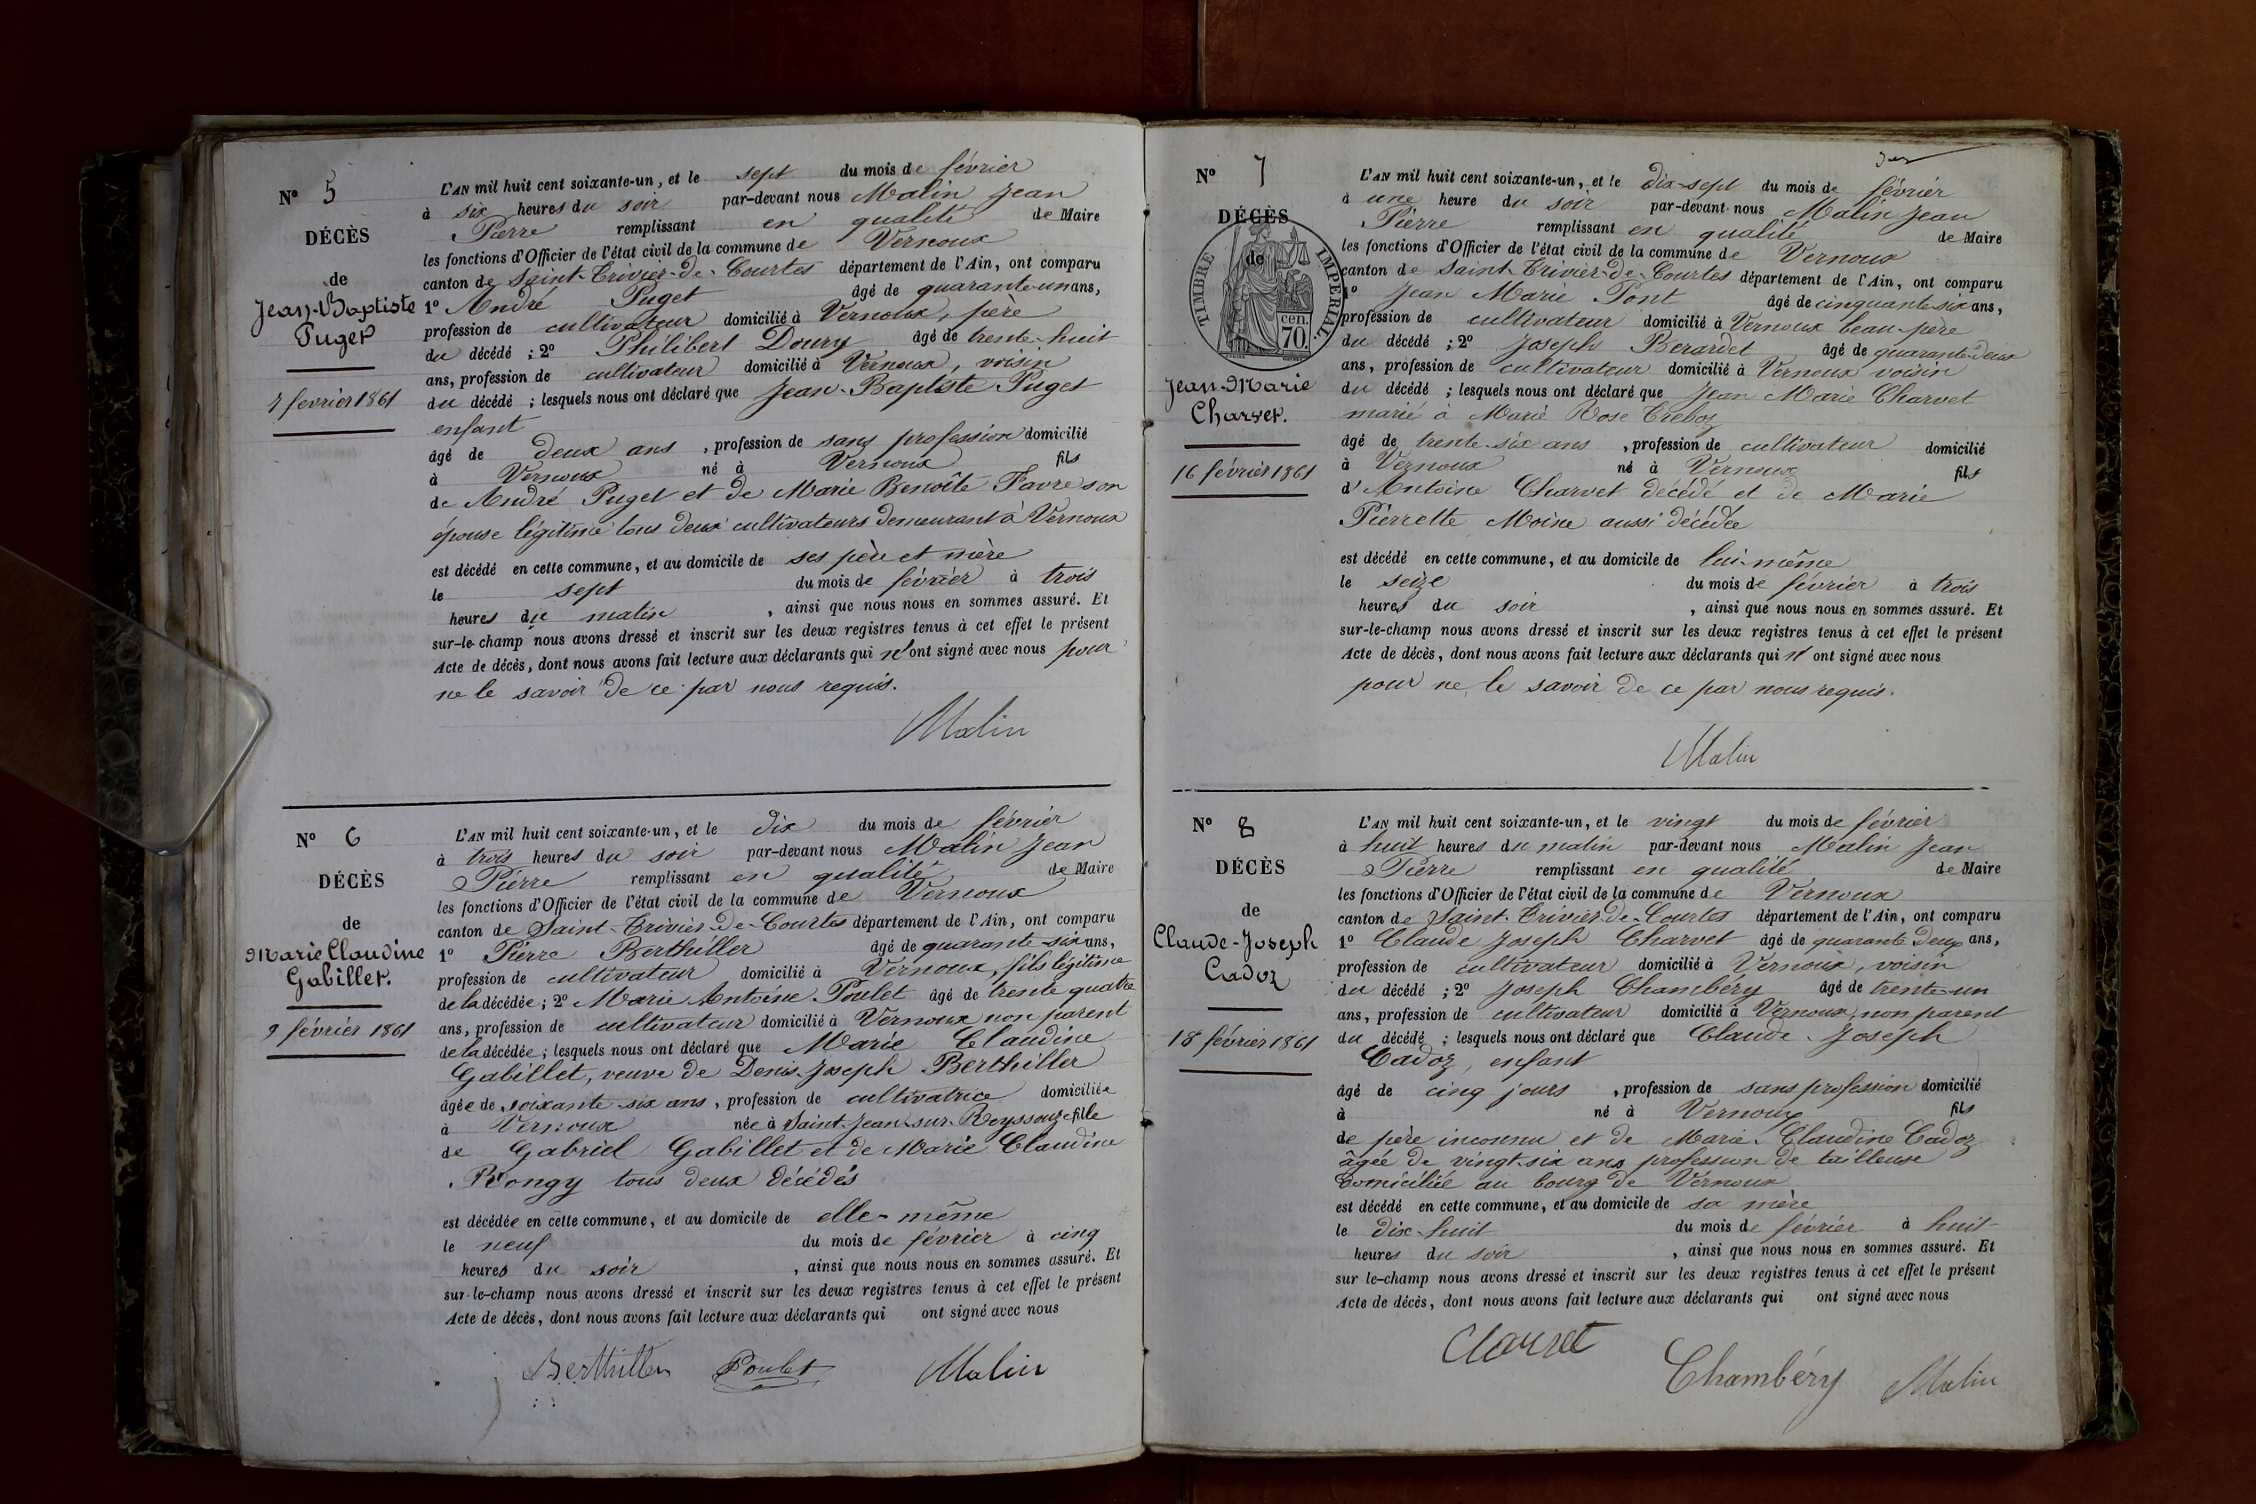 N° 5
DÉCÈS
de
Jean-Baptiste
Puget
7 fevrier 1861
L'AN mil huit cent soixante-un, et le sept du mois de février
à six heures du soir par-devant nous Malin Jean
Pierre remplissant en qualité de Maire
les fonctions d'Officier de l'état civil de la commune de Vernoux
canton de Saint-Trivier-de-Courtes département de l'Ain, ont comparu
1° André Puget âgé de quarante-un ans,
profession de cultivateur domicilié à Vernoux, père
du décédé ; 2° Philibert Doury âgé de trente-huit
ans, profession de cultivateur domicilié à Vernoux, voisin
du décédé ; lesquels nous ont déclaré que Jean-Baptiste Puget
enfant
âgé de deux ans, profession de sans profession domicilié
à Vernoux né à Vernoux fils
de André Puget et de Marie Benoîte Favre son
épouse légitime tous deux cultivateurs demeurant à Vernoux
est décédé en cette commune, et au domicile de ses père et mère
le sept du mois de février à trois
heures du matin, ainsi que nous nous en sommes assuré. Et
sur-le-champ nous avons dressé et inscrit sur les deux registres tenus à cet effet le présent
Acte de décès, dont nous avons fait lecture aux déclarants qui n'ont signé avec nous pour
ne le savoir de ce par nous requis.
Malin
N° 6
DÉCÈS
de
Marie Claudine
Gabillet.
9 février 1861
L'AN mil huit cent soixante-un, et le dix du mois de février
à trois heures du soir par-devant nous Malin Jean
Pierre remplissant en qualité de Maire
les fonctions d'Officier de l'état civil de la commune de Vernoux
canton de Saint-Trivier-de-Courtes département de l'Ain, ont comparu
1° Pierre Berthiller âgé de quarante-six ans,
profession de cultivateur domicilié à Vernoux, fils légitime
de la décédée ; 2° Marie Antoine Poulet âgé de trente quatre
ans, profession de cultivateur domicilié à Vernoux non parent
de la décédée ; lesquels nous ont déclaré que Marie Claudine
Gabillet, veuve de Denis-Joseph Berthiller
âgée de soixante-six ans, profession de cultivatrice domiciliée
à Vernoux née à Saint-Jean-sur-Reyssouze fille
de Gabriel Gabillet et de Marie Claudine
Rongy tous deux décédés
est décédée en cette commune, et au domicile de elle-même
le neuf du mois de février à cinq
heures du soir, ainsi que nous nous en sommes assuré. Et
sur-le-champ nous avons dressé et inscrit sur les deux registres tenus à cet effet le présent
Acte de décès, dont nous avons fait lecture aux déclarants qui ont signé avec nous
Berthiller Poulet Malin
N° 7
DÉCÈS
de
TIMBRE IMPERIAL
cen.
70.
Jean-Marie
Charvet.
16 février 1861
L'AN mil huit cent soixante-un, et le dix-sept du mois de février
à une heure du soir par-devant nous Malin Jean
Pierre remplissant en qualité de Maire
les fonctions d'Officier de l'état civil de la commune de Vernoux
canton de Saint-Trivier-de-Courtes département de l'Ain, ont comparu
1° Jean Marie Pont âgé de cinquante-six ans,
profession de cultivateur domicilié à Vernoux beau-père
du décédé ; 2° Joseph Berardet âgé de quarante-deux
ans, profession de cultivateur domicilié à Vernoux voisin
du décédé ; lesquels nous ont déclaré que Jean Marie Charvet
marié à Marie Rose Treboz
âgé de trente-six ans, profession de cultivateur domicilié
à Vernoux né à Vernoux fils
d'Antoine Charvet décédé et de Marie
Pierrette Moine aussi décédée
est décédé en cette commune, et au domicile de lui-même
le seize du mois de février à trois
heures du soir, ainsi que nous nous en sommes assuré. Et
sur-le-champ nous avons dressé et inscrit sur les deux registres tenus à cet effet le présent
Acte de décès, dont nous avons fait lecture aux déclarants qui n'ont signé avec nous
pour ne le savoir de ce par nous requis.
Malin
N° 8
DÉCÈS
de
Claude-Joseph
Cadoz
18 février 1861
L'AN mil huit cent soixante-un, et le vingt du mois de février
à huit heures du matin par-devant nous Malin Jean
Pierre remplissant en qualité de Maire
les fonctions d'Officier de l'état civil de la commune de Vernoux
canton de Saint-Trivier-de-Courtes département de l'Ain, ont comparu
1° Claude Joseph Charvet âgé de quarante deux ans,
profession de cultivateur domicilié à Vernoux, voisin
du décédé ; 2° Joseph Chambéry âgé de trente-un
ans, profession de cultivateur domicilié à Vernoux, non parent
du décédé ; lesquels nous ont déclaré que Claude-Joseph
Cadoz, enfant
âgé de cinq jours, profession de sans profession domicilié
à né à Vernoux fils
de père inconnu et de Marie-Claudine Cadoz
âgée de vingt-six ans profession de tailleuse
domiciliée au bourg de Vernoux
est décédé en cette commune, et au domicile de sa mère
le dix-huit du mois de février à huit
heures du soir, ainsi que nous nous en sommes assuré. Et
sur le-champ nous avons dressé et inscrit sur les deux registres tenus à cet effet le présent
Acte de décès, dont nous avons fait lecture aux déclarants qui ont signé avec nous
Charvet
Chambéry Malin